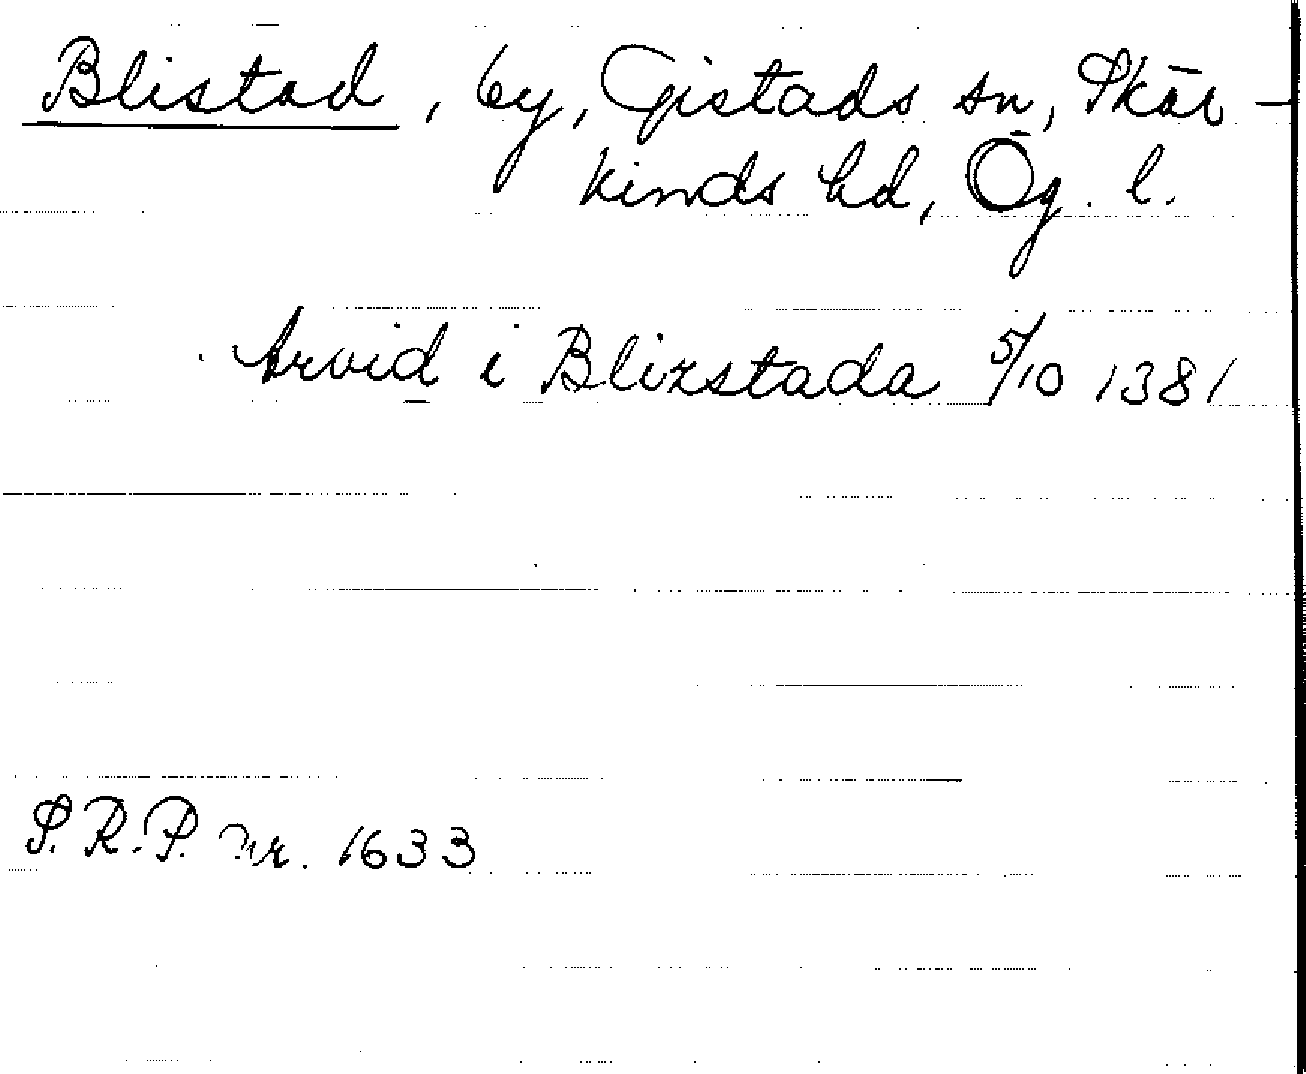 Blistad, by, Gistads sn, Skär-
kinds hd, Ög. l.
Arvid i Blizstada 5/10 1381
S.R.P. nr. 1633